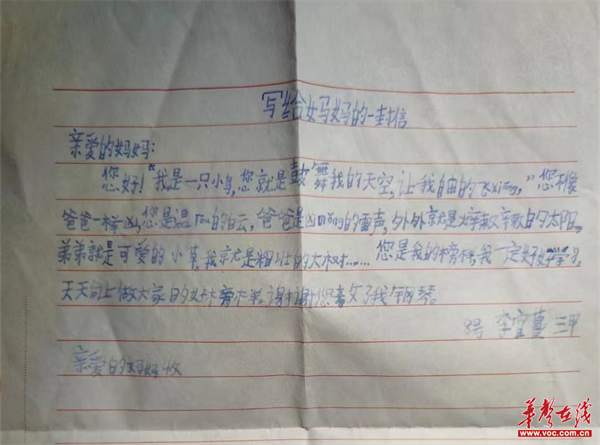 写给妈妈的一封信
亲爱的妈妈:
您好!“我是一只小鸟,您就是鼓舞我的天空,让我自由的飞xiang,”您不像
爸爸一样凶,您是温rou的白云,爸爸是凶meng的雷声,外外就是文文的太阳。
弟弟就是可爱的小草,我就是粗壮的大树……您是我的榜样,我一定好好学习,
天天向上做大家的好榜样。谢谢您教了我钢琴。
8号 李宜蔓 三甲
亲爱的妈妈收
华声在线
www.voc.com.cn